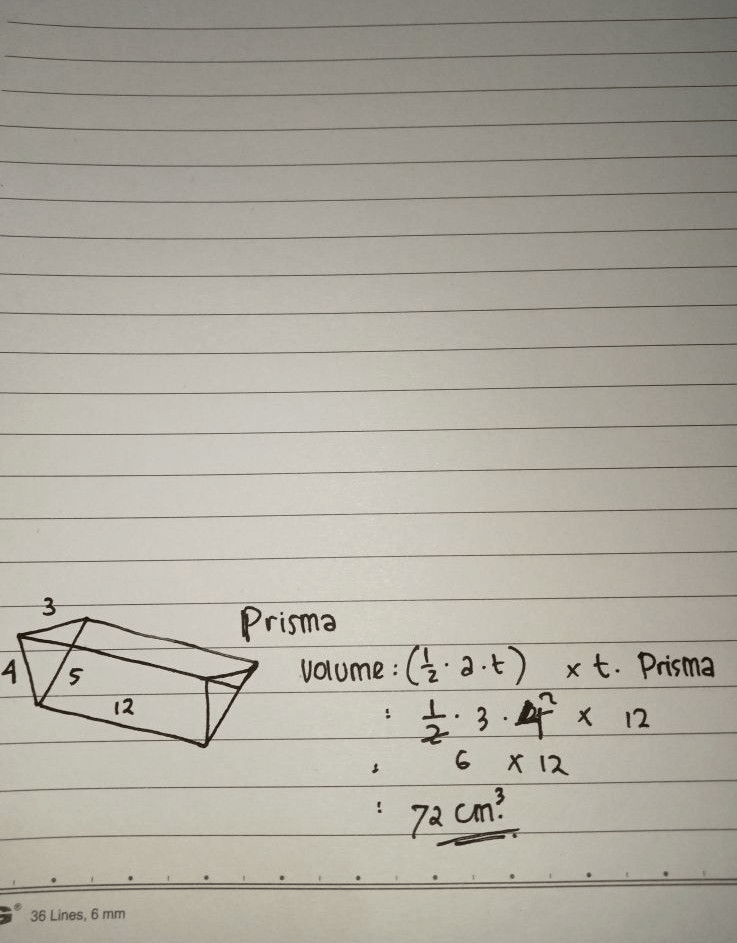 3
4
5
12
Prisma
Volume: (1/2 · a · t) x t. Prisma
: 1/2 · 3 · 4² x 12
: 6 x 12
: 72 cm³.
36 Lines, 6 mm